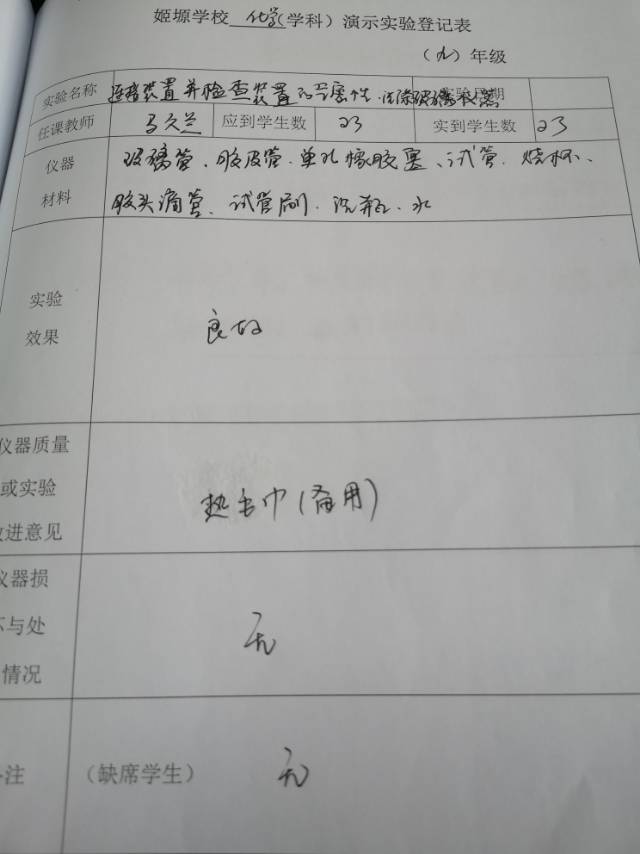 姬塬学校 化学(学科）演示实验登记表
（九）年级
实验名称 连接装置并检查装置的气密性.洗涤玻璃仪器 实验日期
任课教师 马久兰 应到学生数 23 实到学生数 23
仪器 玻璃管、胶皮管.单孔橡胶塞、试管.烧杯、
材料 胶头滴管、试管刷.洗瓶.水
实验
效果 良好
仪器质量
或实验 热毛巾(备用)
改进意见
仪器损
坏与处 无
情况
备注 （缺席学生） 无